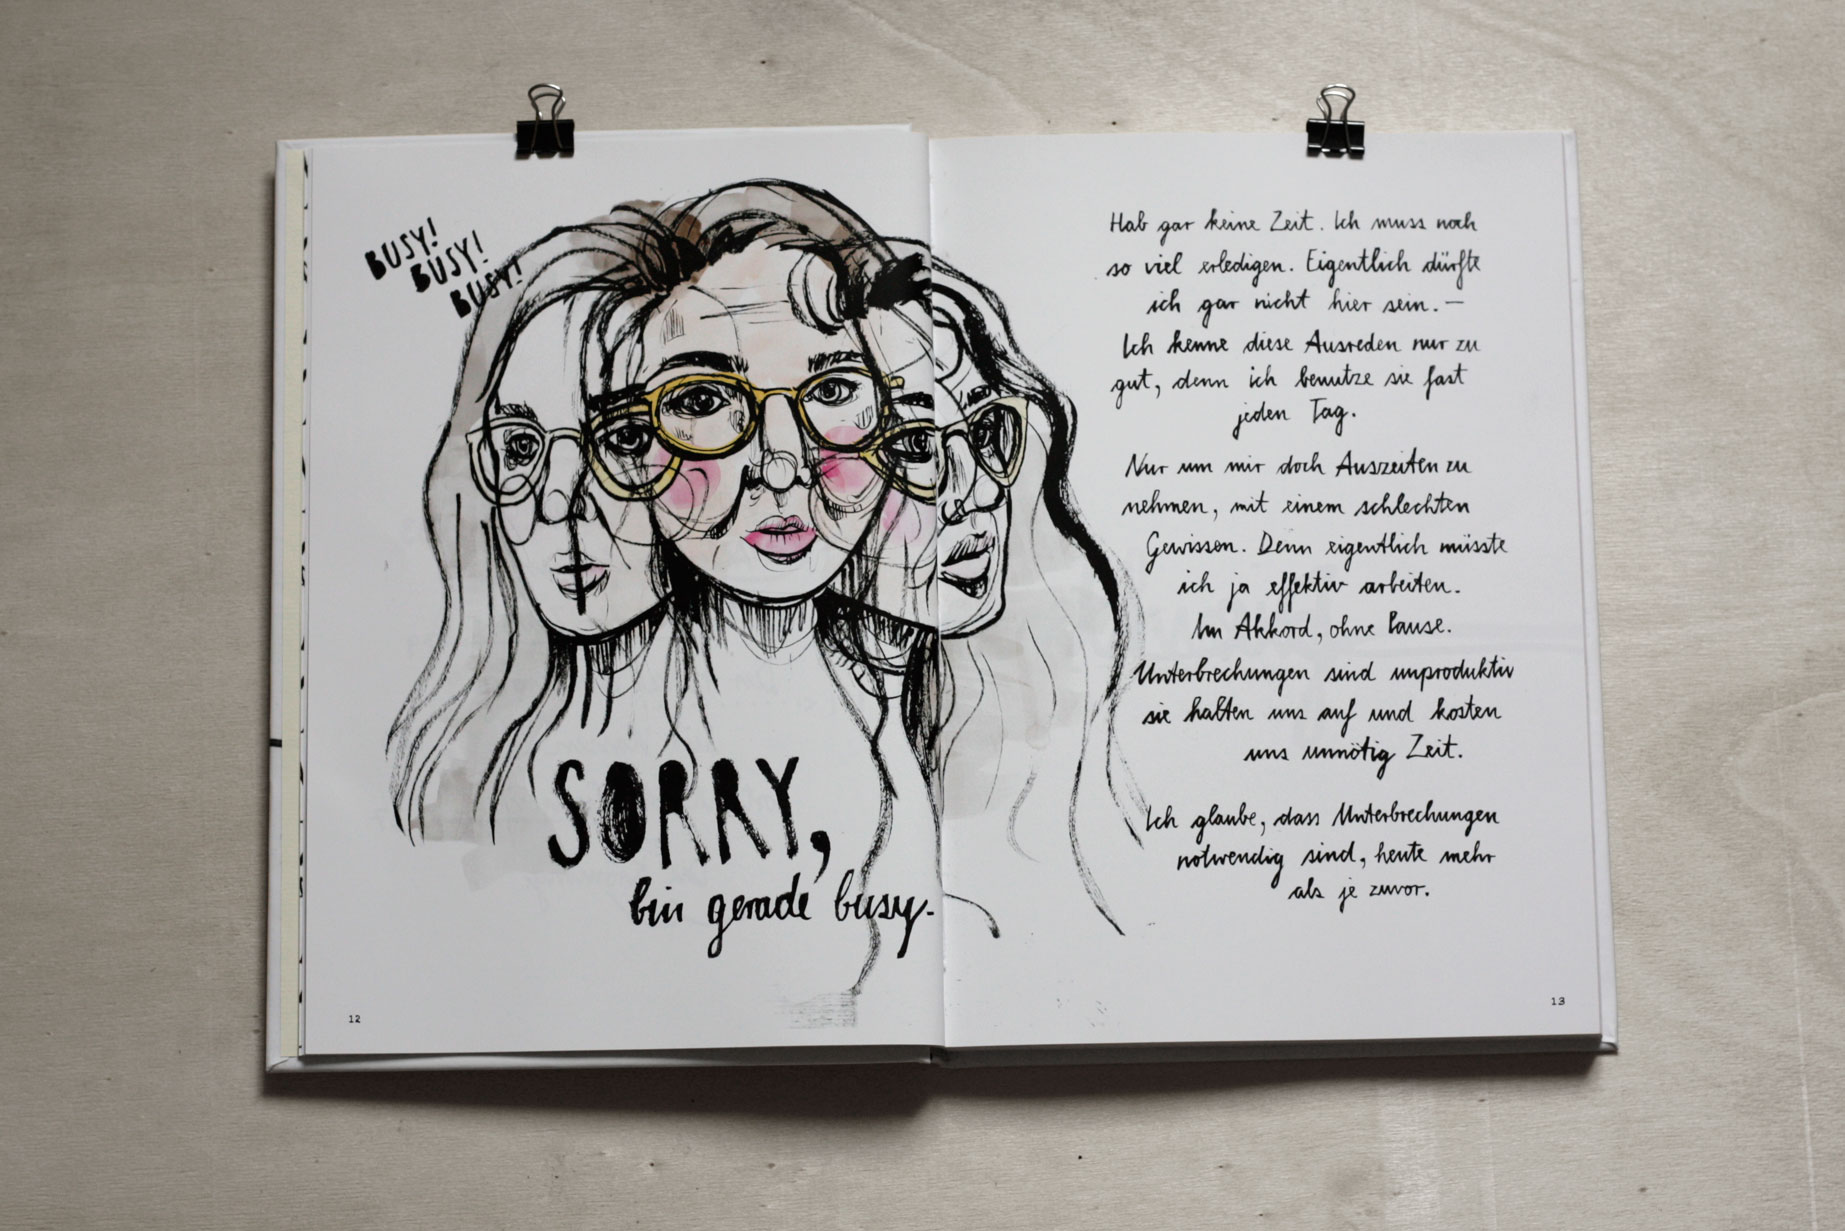 BUSY!
BUSY!
BUSY!
SORRY,
bin gerade busy.
12
Hab gar keine Zeit. Ich muss noch
so viel erledigen. Eigentlich dürfte
ich gar nicht hier sein. —
Ich kenne diese Ausreden nur zu
gut, denn ich benutze sie fast
jeden Tag.
Nur um mir doch Auszeiten zu
nehmen, mit einem schlechten
Gewissen. Denn eigentlich müsste
ich ja effektiv arbeiten.
Im Akkord, ohne Pause.
Unterbrechungen sind unproduktiv
sie halten uns auf und kosten
uns unnötig Zeit.
Ich glaube, dass Unterbrechungen
notwendig sind, heute mehr
als je zuvor.
13